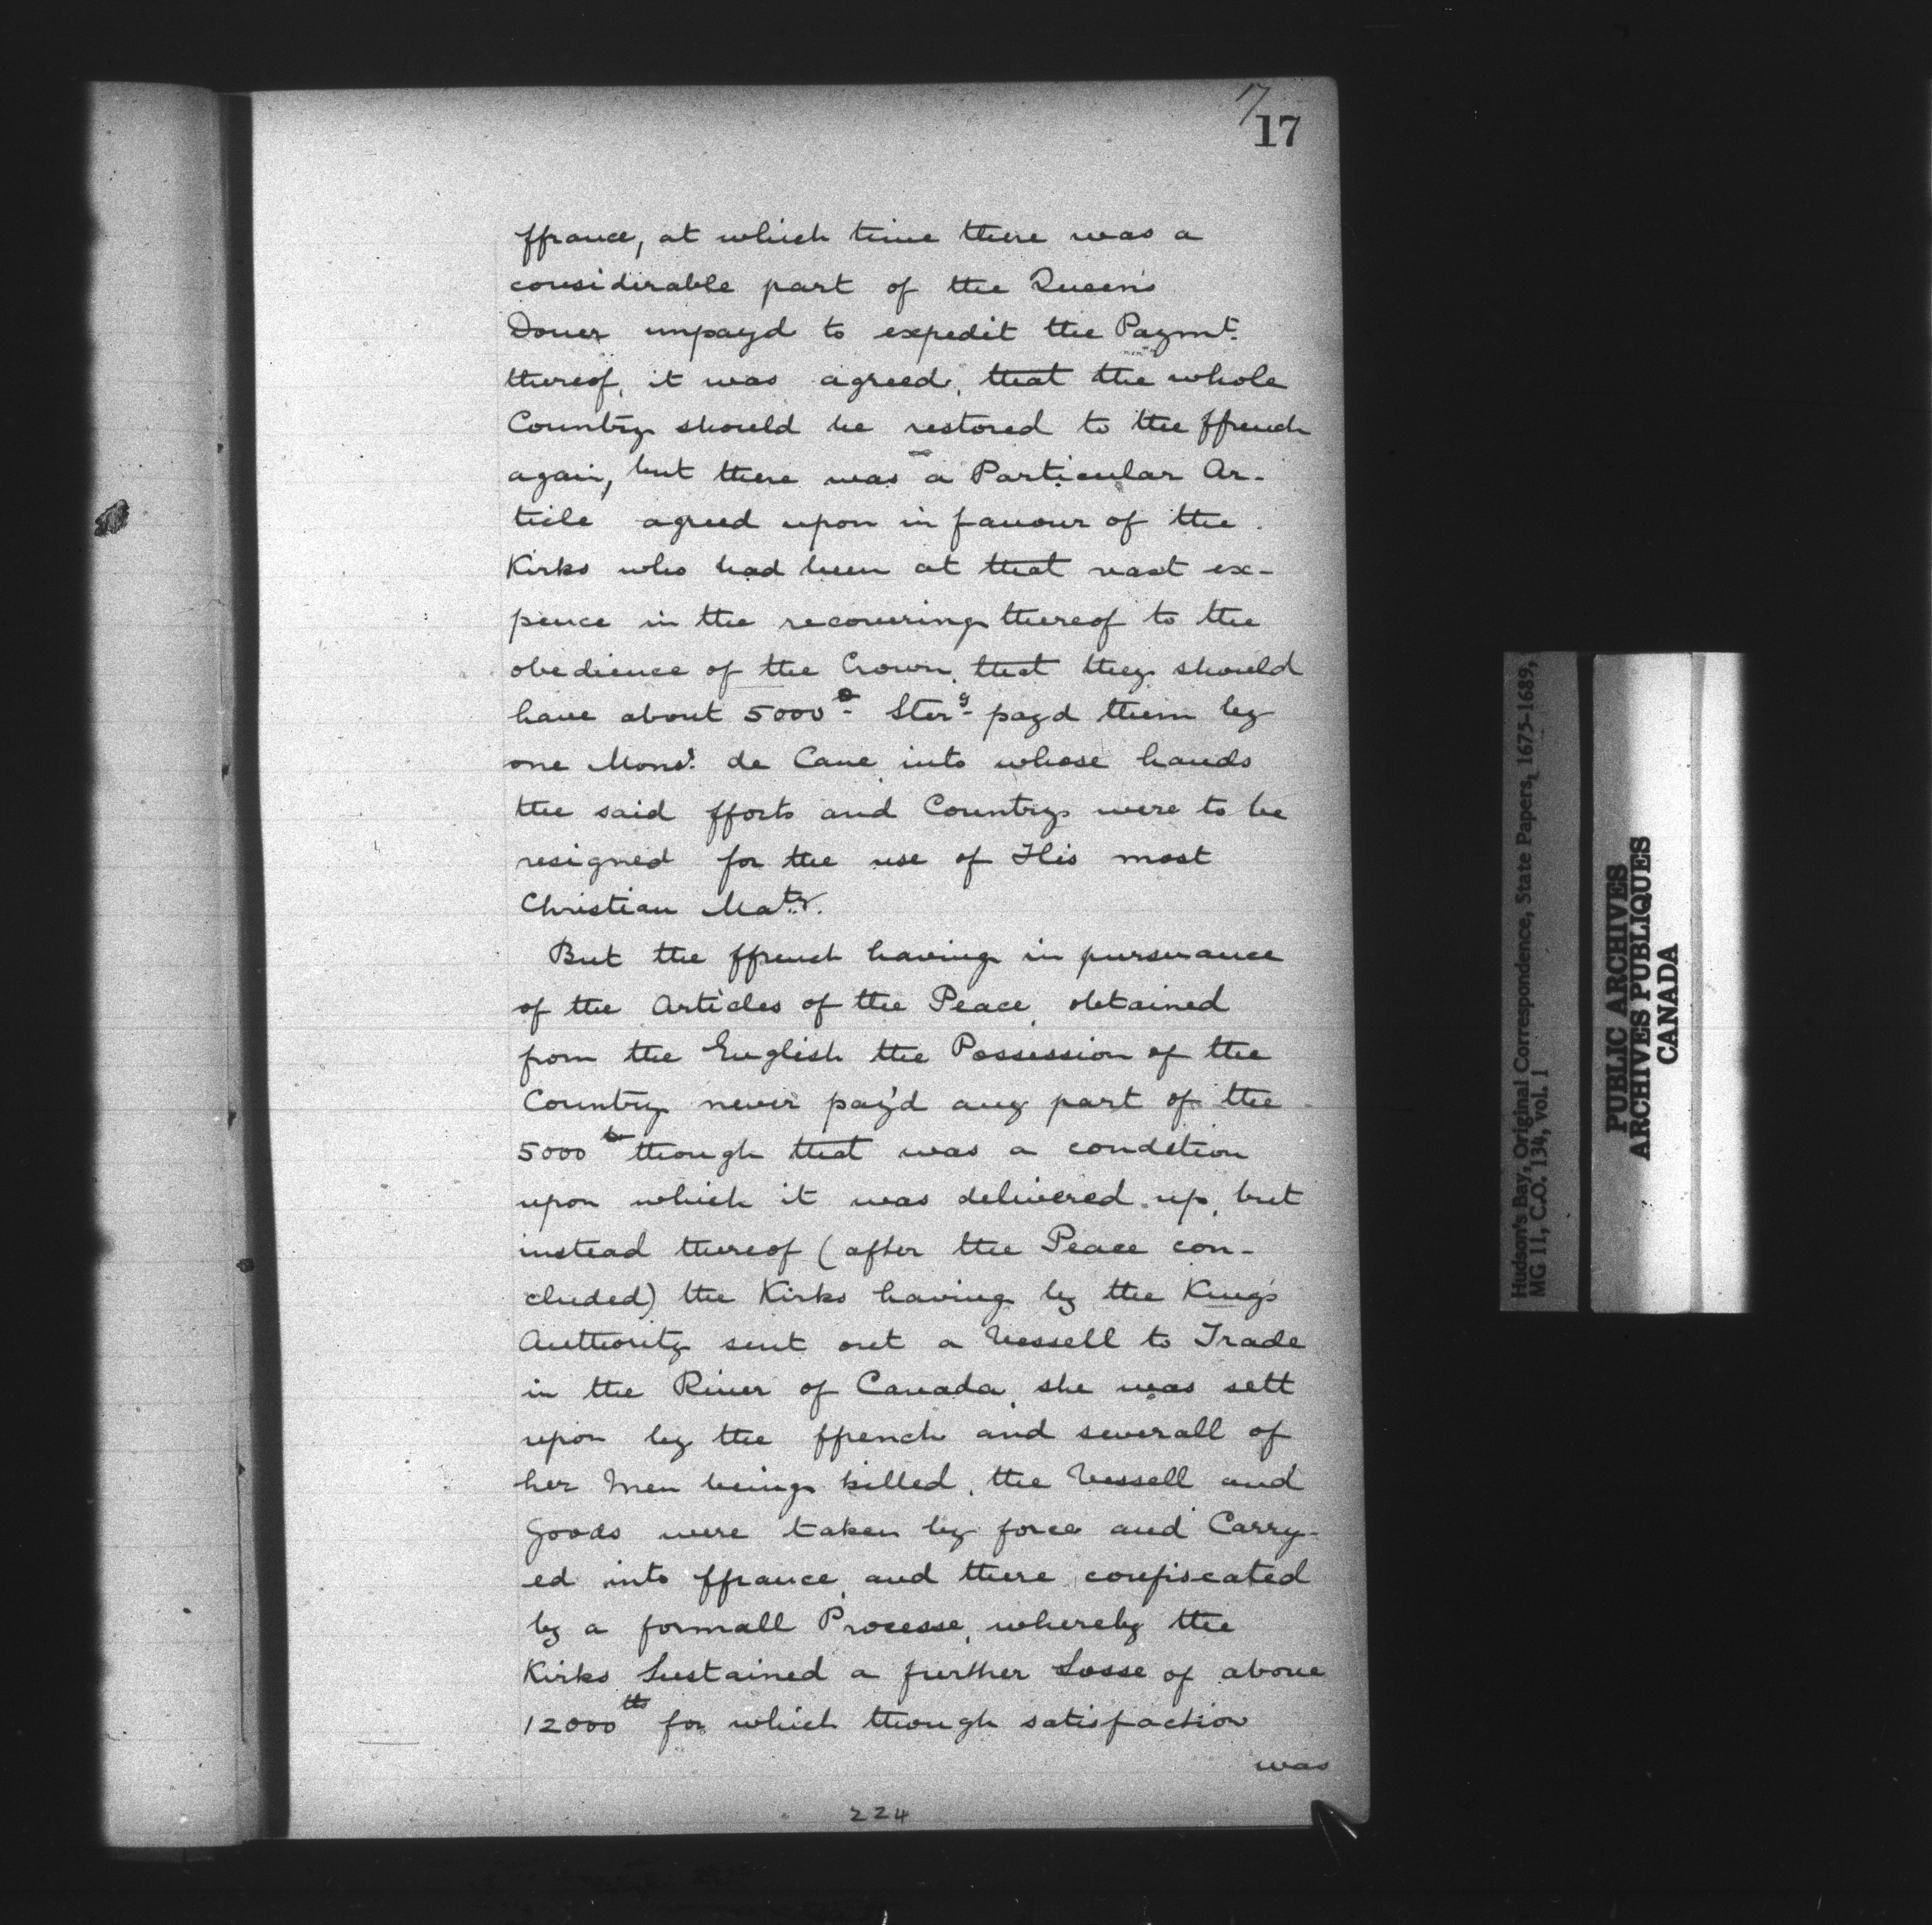 17
17
ffrance, at which time there was a
considerable part of the Queen's
Dower unpayd to expedit the Paymt.
thereof, it was agreed, that the whole
Country should be restored to the ffrench
again, but there was a Particular Ar-
ticle agreed upon in favour of the
Kirks who had been at that vast ex-
pence in the recovering thereof to the
obedience of the Crown, that they should
have about 5000 Sterg. payd them by
one Monsr. de Cane into whose hands
the said fforts and Country were to be
resigned for the use of His most
Christian Maty.
But the ffrench having in pursuance
of the Articles of the Peace, obtained
from the English the Possession of the
Country never pay'd any part of the
5000 though that was a condition
upon which it was delivered up, but
instead thereof (after the Peace con-
cluded) the Kirks having by the King's
Authority sent out a Vessell to Trade
in the River of Canada, she was sett
upon by the ffrench and severall of
her Men being killed, the Vessell and
Goods were taken by force and Carry-
ed into ffrance, and there confiscated
by a formall Processe, whereby the
Kirks Sustained a further Losse of above
12000 for which though satisfaction
was
224
Hudson's Bay, Original Correspondence, State Papers, 1675-1689,
MG 11, C.O. 134, vol. 1
PUBLIC ARCHIVES
ARCHIVES PUBLIQUES
CANADA